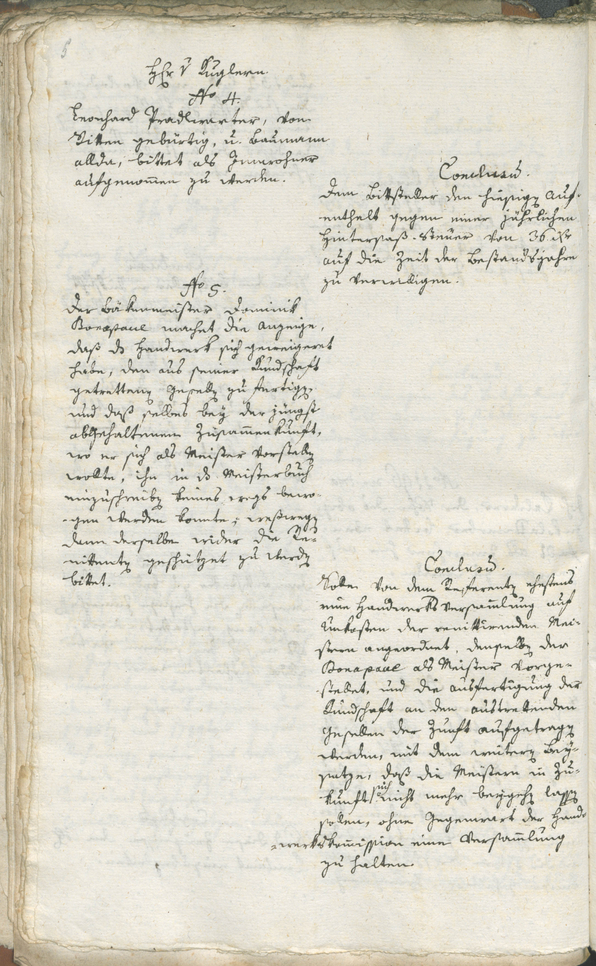 Hr v Kuglern
No 4.
Leonhard Pradlwarter, von
Ritten gebürtig, u. Baumann
allda, bittet als Innwohner
aufgenommen zu werden.
Conclusū.
Dem Bittsteller den hiesigen Auf-
enthalt gegen einer jährlichen
Hintersaß-Steuer von 36 xr
auf die Zeit der Bestandsjahre
zu verwilligen.
No 5.
Der Bäkenmeister Dominik
Bonapace machet die Anzeige,
daß ds Handwerk sich geweigeret
habe, den aus seiner Kundschaft
getrettenen Gesellen zu fertigen
und daß selbes bey der jüngst
abgehaltenen Zusammenkunft,
wo er sich als Meister vorstellen
wollte, ihn in ds Meisterbuch
einzuschreiben keines wegs bewo-
gen werden konnte; weßwegen
dann derselbe wider die Re-
nitenten geschützet zu werden
bittet.
Conclusū.
Solle von dem Referenten ehestens
eine Handwerks Versammlung auf
Unkosten der renittirenden Mei-
stern angeordnet, denselben der
Bonapace als Meister vorge-
stellet, und die Ausfertigung der
Kundschaft an den austrettenden
Gesellen der Zunft aufgetragen
werden, mit dem weitern Bey-
satze, daß die Meistern in Zu-
kunft sich nicht mehr beygehen lassen
sollen, ohne Gegenwart der Hand-
werkskommission eine Versammlung
zu halten